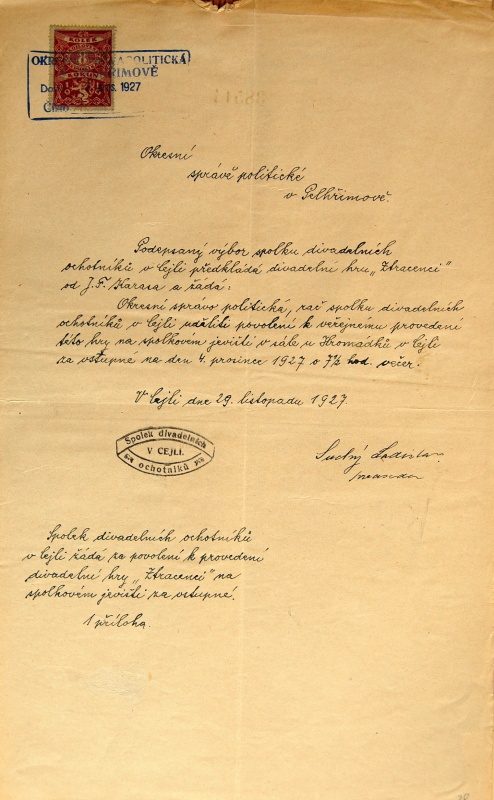 OKR POLITICKÁ
ŘIMOVĚ
1927
Číslo
KOLEK
Okresní
správě politické
v Pelhřimově.
Podepsaný výbor spolku divadelních
ochotníků v Cejli předkládá divadelní hru „Ztracenci"
od J. F. Karasa a žádá:
Okresní správo politická, rač spolku divadelních
ochotníků v Cejli uděliti povolení k veřejnému provedení
této hry na spolkovém jevišti v sále u Hromádků v Cejli
za vstupné na den 4. prosince 1927 o 7½ hod. večer.
V Cejli dne 29. listopadu 1927
Spolek divadelních
V CEJLI.
ochotníků
Suchý Ladislav
Spolek divadelních ochotníků
v Cejli žádá za povolení k provedení
divadelní hry „Ztracenci" na
spolkovém jevišti za vstupné.
1 příloha.